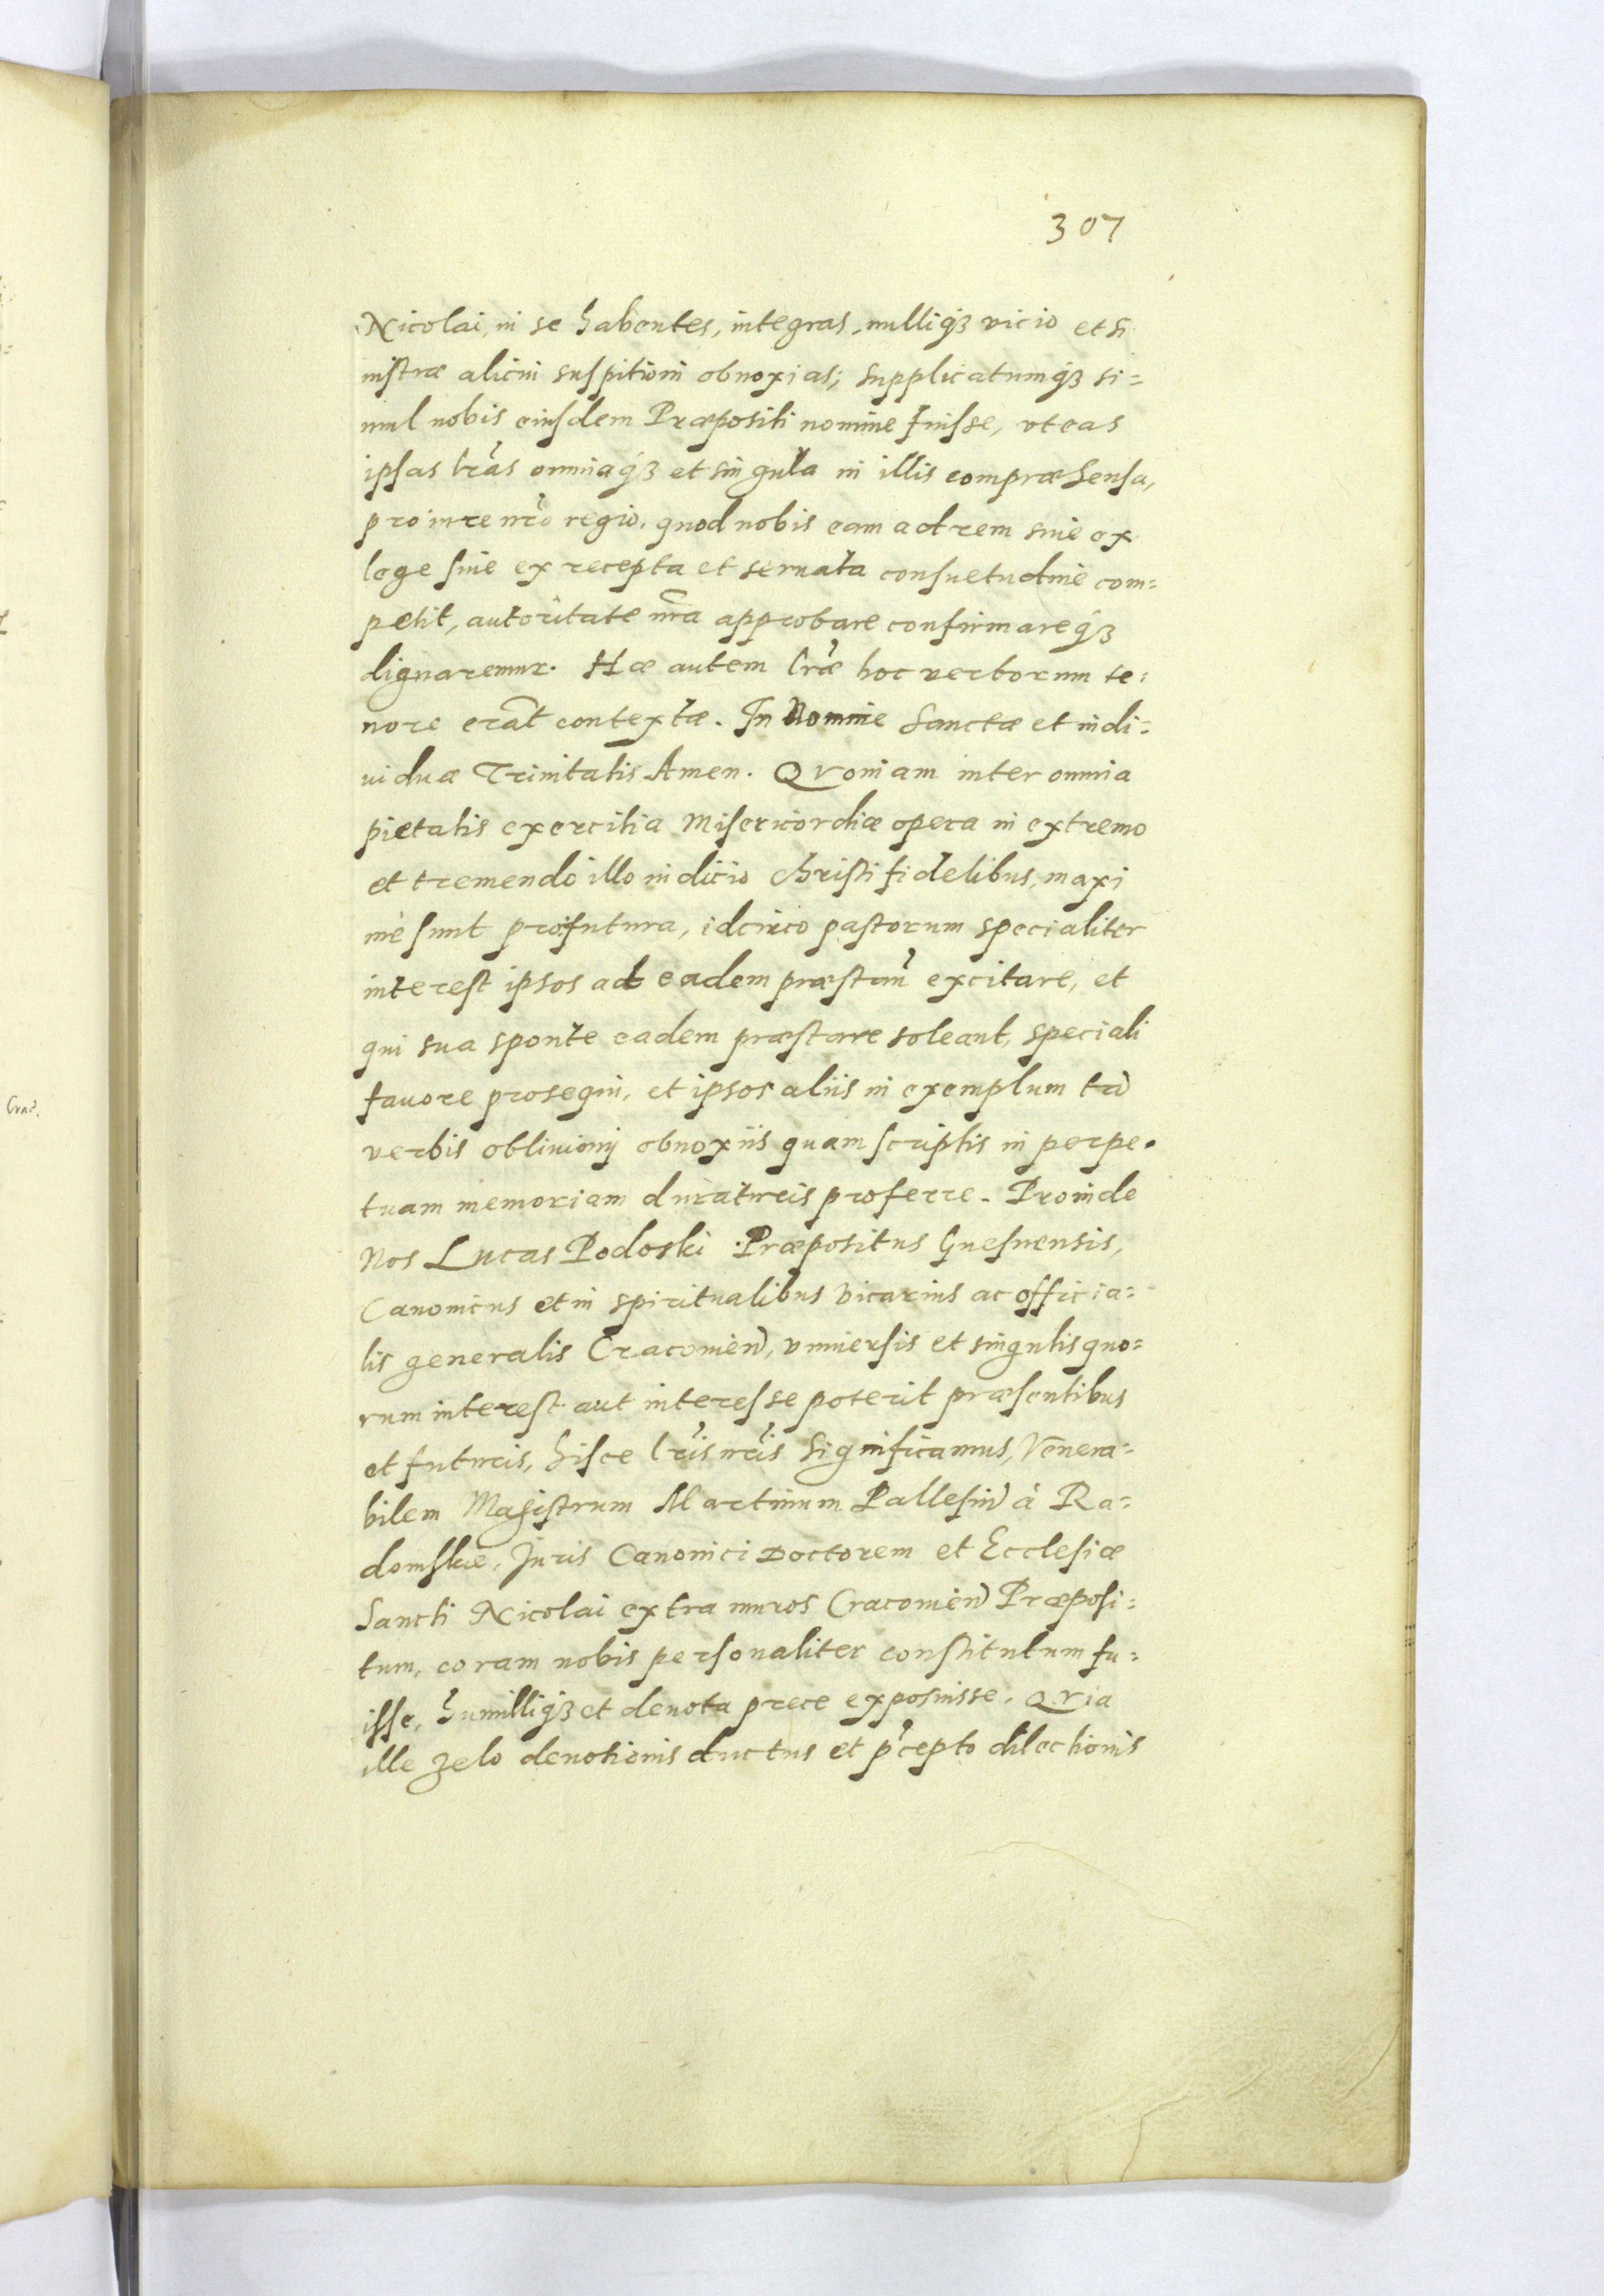 307
Nicolai, in se habentes, integras, nulliq₃ vicio et si
nistræ alicui suspitioni obnoxias; supplicatumq₃ si=
mul nobis eiusdem Præpositi nomine fuisse, vt eas
ipsas l̃ras omniaq₃ et singula in illis compræhensa,
pro iure nr̃o regio, quod nobis eam ad rem siue ex
lege siue ex recepta et seruata consuetudine com=
petit, autoritate nr̃a approbare confirmareq₃
dignaremur. Hæ autem l̃ræ hoc verborum te=
nore erãt contextæ. In Nomine Sanctæ et indi=
uiduæ Trinitatis Amen. Qvoniam inter omnia
pietatis exercitia Misericordiæ opera in extremo
et tremendo illo iudicio Christi fidelibus, maxi
mè sunt profutura, idcirco pastorum specialiter
interest ipsos ad eadem præstan̄ excitare, et
qui sua sponte eadem præstare soleant, speciali
fauore prosequi, et ipsos aliis in exemplum tã
verbis obliuioni obnoxiis quam scriptis in perpe=
tuam memoriam duraturis proferre. Proinde
Nos Lucas Podoski Præpositus Gnesnensis,
Canonicus et in spiritualibus Vicarius ac officia=
lis generalis Cracouien̄, vniuersis et singulis quo=
rum interest aut interesse poterit præsentibus
et futuris, hisce l̃ris nr̃is significamus, Venera=
bilem Magistrum Martinum Pallesin̄ à Ra=
domskie, Juris Canonici Doctorem et Ecclesiæ
Sancti Nicolai extra muros Cracouien̄ Præposi=
tum, coram nobis personaliter constitutum fu=
isse, humilliq₃ et deuota prece exposuisse. Qvia
ille zelo deuotionis ductus et p̃cepto dilectionis
Cra.